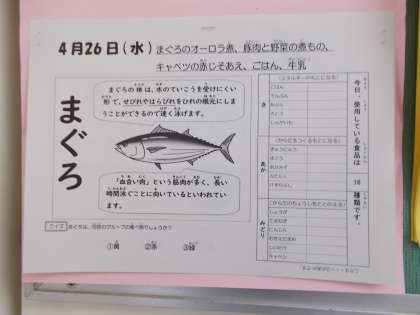 4月26日(水) まぐろのオーロラ煮、豚肉と野菜の煮もの、
キャベツの赤じそあえ、ごはん、牛乳
まぐろ
まぐろの体は、水のていこうを受けにくい
形で、せびれやはらびれをひれの根元にしま
うことができるので速く泳げます。
「血合い肉」という筋肉が多く、長い
時間泳ぐことに向いているといわれてい
ます。
クイズ
まぐろは、何色のグループの食べ物でしょうか？
①黄 ②赤 ③緑
今日、使用している食品は 18 種類です。
き
(エネルギーのもとになる)
ごはん
でんぷん
さとう
じゃがいも
あか
(からだをつくるもとになる)
ぎゅうにゅう
まぐろ
ぶたにく
みどり
(からだのちょうしをととのえる)
しょうが
たまねぎ
にんじん
キャベツ